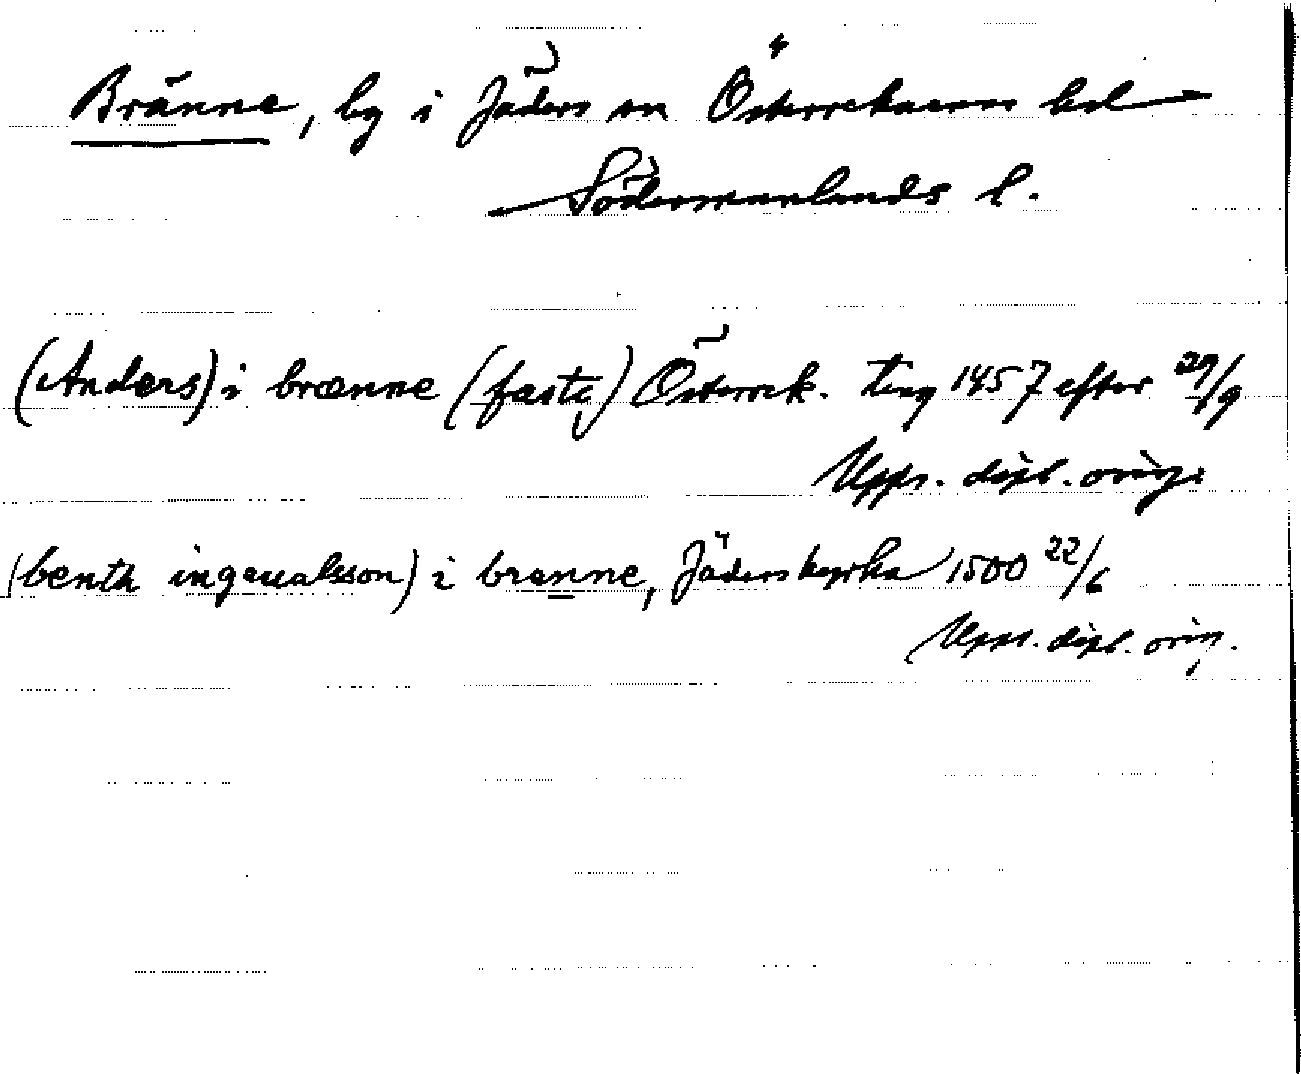 Bränne, by i Jäders sn Österrekarne hd
Södermanlands l.
(Anders) i brænne (faste) Österrek. ting 1457 efter 29/9
Upps. dipl. orig.
(benth ingeualsson) i brenne, Jäders kyrka 1500 22/6
Upps. dipl. orig.